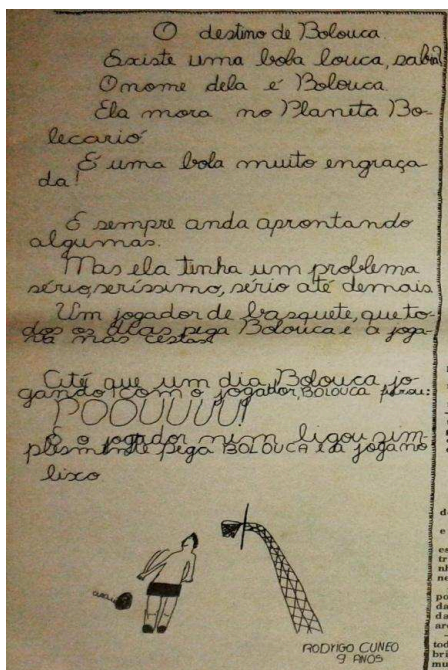 O destino de Bolouca.
Existe uma bola louca, sabia?
O nome dela é Bolouca.
Ela mora no Planeta Bo-
lecario.
É uma bola muito engraça-
da!
E sempre anda aprontando
algumas.
Mas ela tinha um problema
sério, seríssimo, sério até demais
Um jogador de basquete, que to-
dos os dias pega Bolouca e a joga-
va nas cestas.
Até que um dia, Bolouca jo-
gando com o jogador, BOLOUCA furou:
POOUUUU!
E o jogador nem ligou sim-
plesmente pega BOLOUCA e a joga no
lixo
RODRIGO CUNEO
9 ANOS